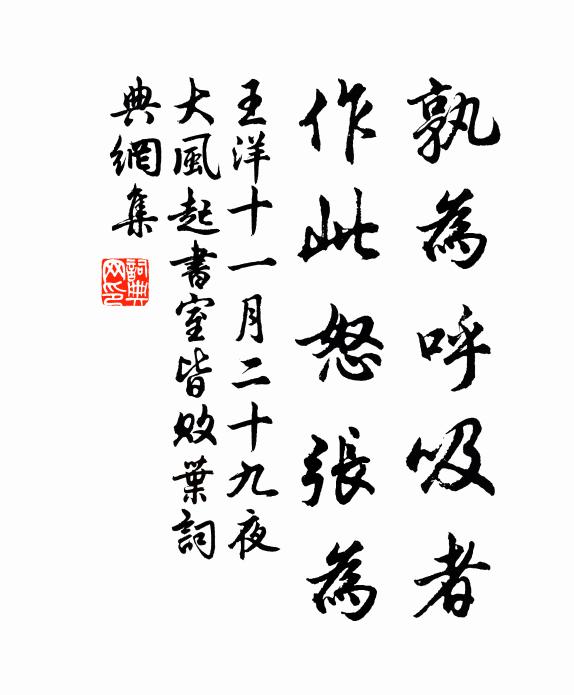 孰為呼吸者
作此怒張為
王洋十一月二十九夜
大風起書室皆敗葉詞
典網集
詞典
网印